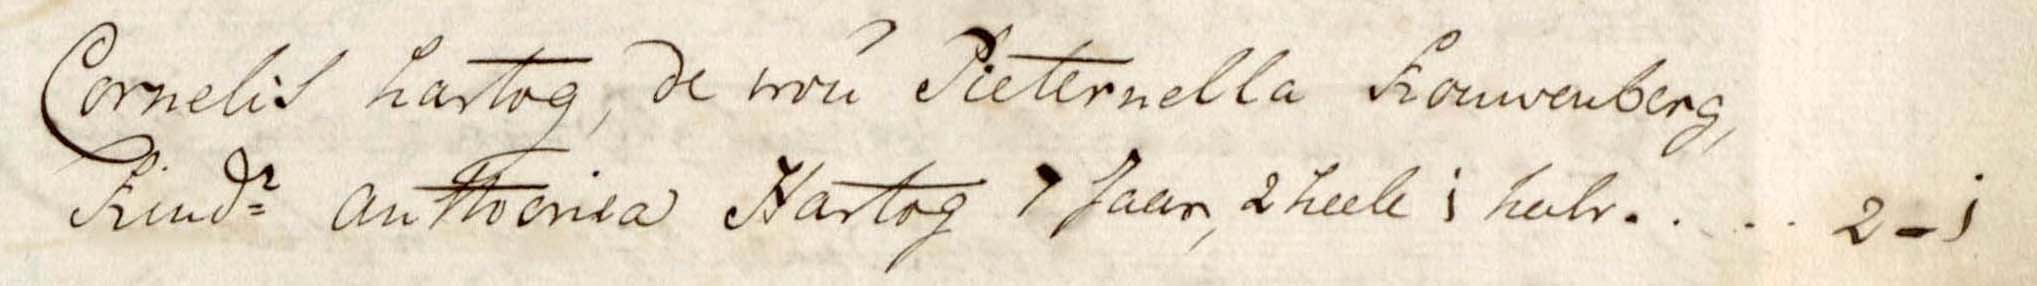 Cornelis hartog, de vroú Pieternella Kouwenberg,
Kindr Anthonia Hartog 7 Jaar, 2 heele i halv..... 2-i